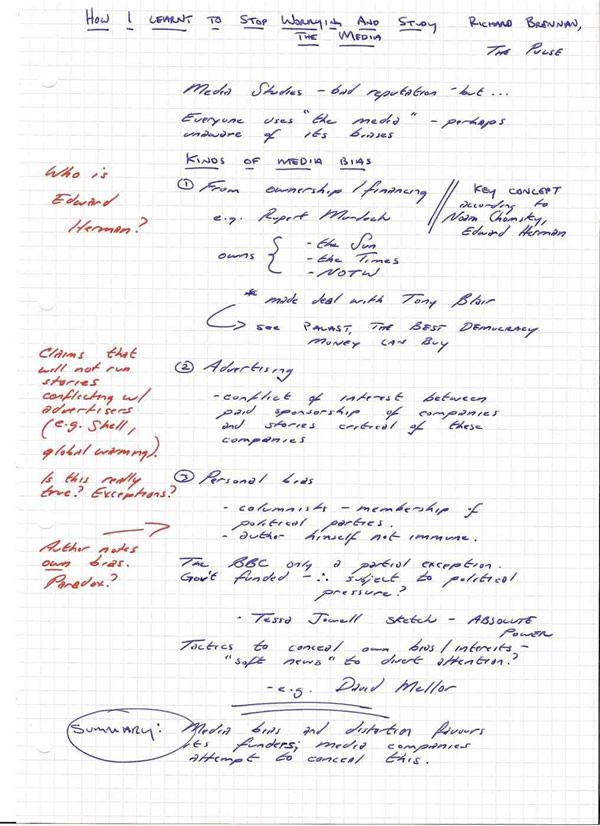 HOW I LEARNT TO STOP WORRYING AND STUDY
THE MEDIA
RICHARD BRENNAN,
THE PULSE
Media Studies - bad reputation - but ...
Everyone uses "the media" - perhaps
unaware of its biases
KINDS OF MEDIA BIAS
Who is
Edward
Herman?
① From ownership / financing
e.g. Rupert Murdoch
owns { - the Sun
- the Times
- NOTW
KEY CONCEPT
according to
Noam Chomsky,
Edward Herman
* made deal with Tony Blair
→ see PALAST, THE BEST DEMOCRACY
MONEY CAN BUY
Claims that
will not run
stories
conflicting w/
advertisers
(e.g. Shell,
global warming).
② Advertising
- conflict of interest between
paid sponsorship of companies
and stories critical of these
companies
Is this really
true? Exceptions?
③ Personal bias
- columnists - membership of
political parties.
- author himself not immune.
Author notes
own bias.
Paradox?
The BBC only a partial exception.
Gov't funded - ∴ subject to political
pressure?
· Tessa Jowell sketch - ABSOLUTE
POWER
Tactics to conceal own bias / interests -
"soft news" to divert attention?
- e.g. David Mellor
SUMMARY:
Media bias and distortion favours
its funders; media companies
attempt to conceal this.